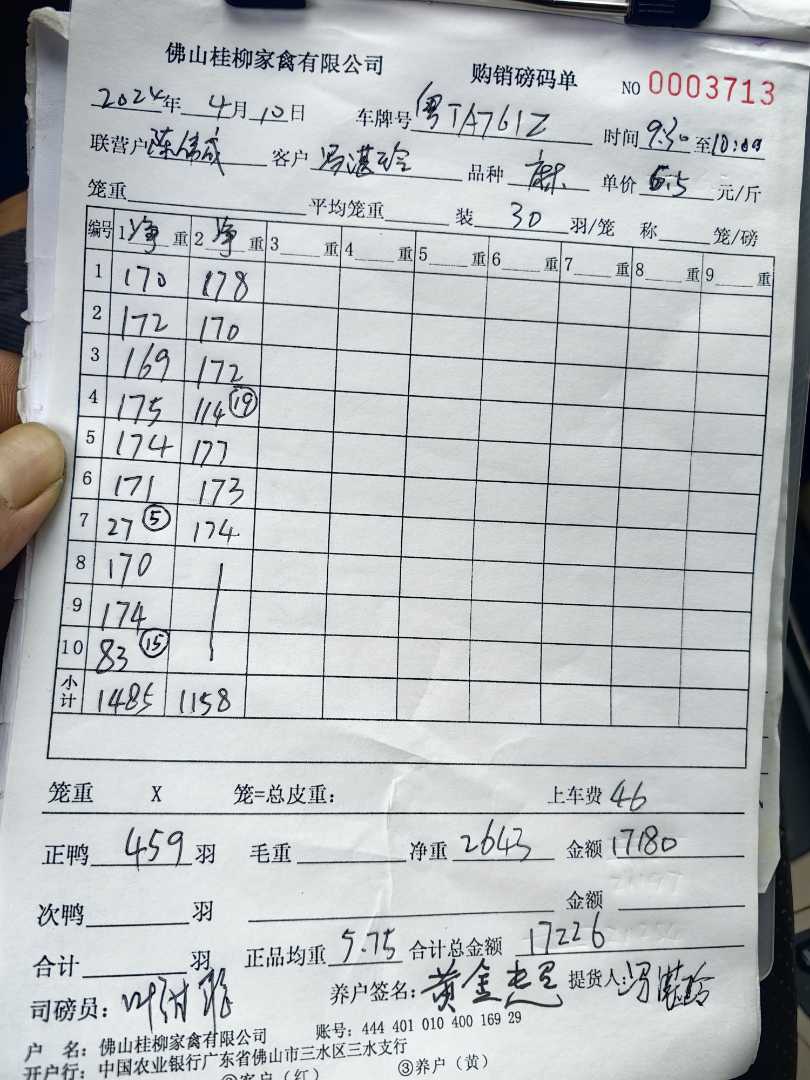 佛山桂柳家禽有限公司 购销磅码单 NO 0003713
2024年 4月 10日 车牌号 粤TA761Z 时间 9:30 至 10:00
联营户 陈伟成 客户 冯湛玲 品种 麻 单价 6.5 元/斤
笼重 平均笼重 装 30 羽/笼 称 笼/磅
编号 1 净 重 2 净 重 3 重 4 重 5 重 6 重 7 重 8 重 9 重
1 170 178
2 172 170
3 169 172
4 175 114 ⑲
5 174 177
6 171 173
7 27 ⑤ 174
8 170
9 174
10 83 ⑮
小计 1485 1158
笼重 X 笼=总皮重: 上车费 46
正鸭 459 羽 毛重 净重 2643 金额 17180
次鸭 羽 金额
合计 羽 正品均重 5.75 合计总金额 17226
司磅员: 叶 养户签名: 黄金 提货人: 冯湛玲
户 名: 佛山桂柳家禽有限公司 账号: 444 401 010 400 169 29
开户行: 中国农业银行广东省佛山市三水区三水支行
②客户（红） ③养户（黄）